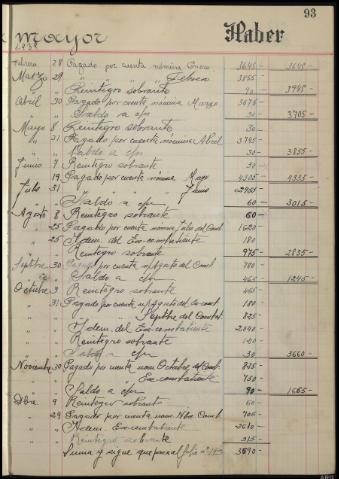 93
mayor Haber
1938
Febrero 28 Pagado por cuenta nómina Enero 3645 - 3645 -
Marzo 29 " " " " Febrero 3855 -
" " Reintegro sobrante 90 - 3945 -
Abril 30 Pagado por cuenta nómina Marzo 3675 -
" " Saldo a 30 - 3705 -
Mayo 8 Reintegro sobrante 30 -
" 31 Pagado por cuenta nómina Abril 3795 -
" " Saldo a 30 - 3855 -
Junio 7 Reintegro sobrante 30 -
" 19 Pagado por cuenta nómina Mayo 4305 - 4335 -
Julio 31 " " " " Junio 2955 -
" " Saldo a 60 3015 -
Agosto 8 Reintegro sobrante 60 -
" 25 Pagado por cuenta nómina Julio del Comb 1620
" 25 Idem del Excombatiente 180
" " Reintegro sobrante 975 - 2835 -
Septbre 30 por cuenta Agosto del Comb 780
" " Saldo a 465 1245 -
Octubre 3 Reintegro sobrante 465 -
" 31 Pagado por cuenta Agosto del 180
" " Septbre del Combat 825
" " Idem del Excombatiente 2040
" " Reintegro sobrante
" " Saldo a 30 3660 -
Noviembre 30 Pagado por cuenta nom Octubre del Comb 825
" " Excombatiente 750
" " Saldo a 90 - 1665 -
Dbre 9 Reintegro sobrante 60
" 29 Pagado por cuenta nom Nbre Comb 705
" " Idem Excombatiente
" " Reintegro sobrante 315 -
Suma y sigue que pasa al folio 3690 -